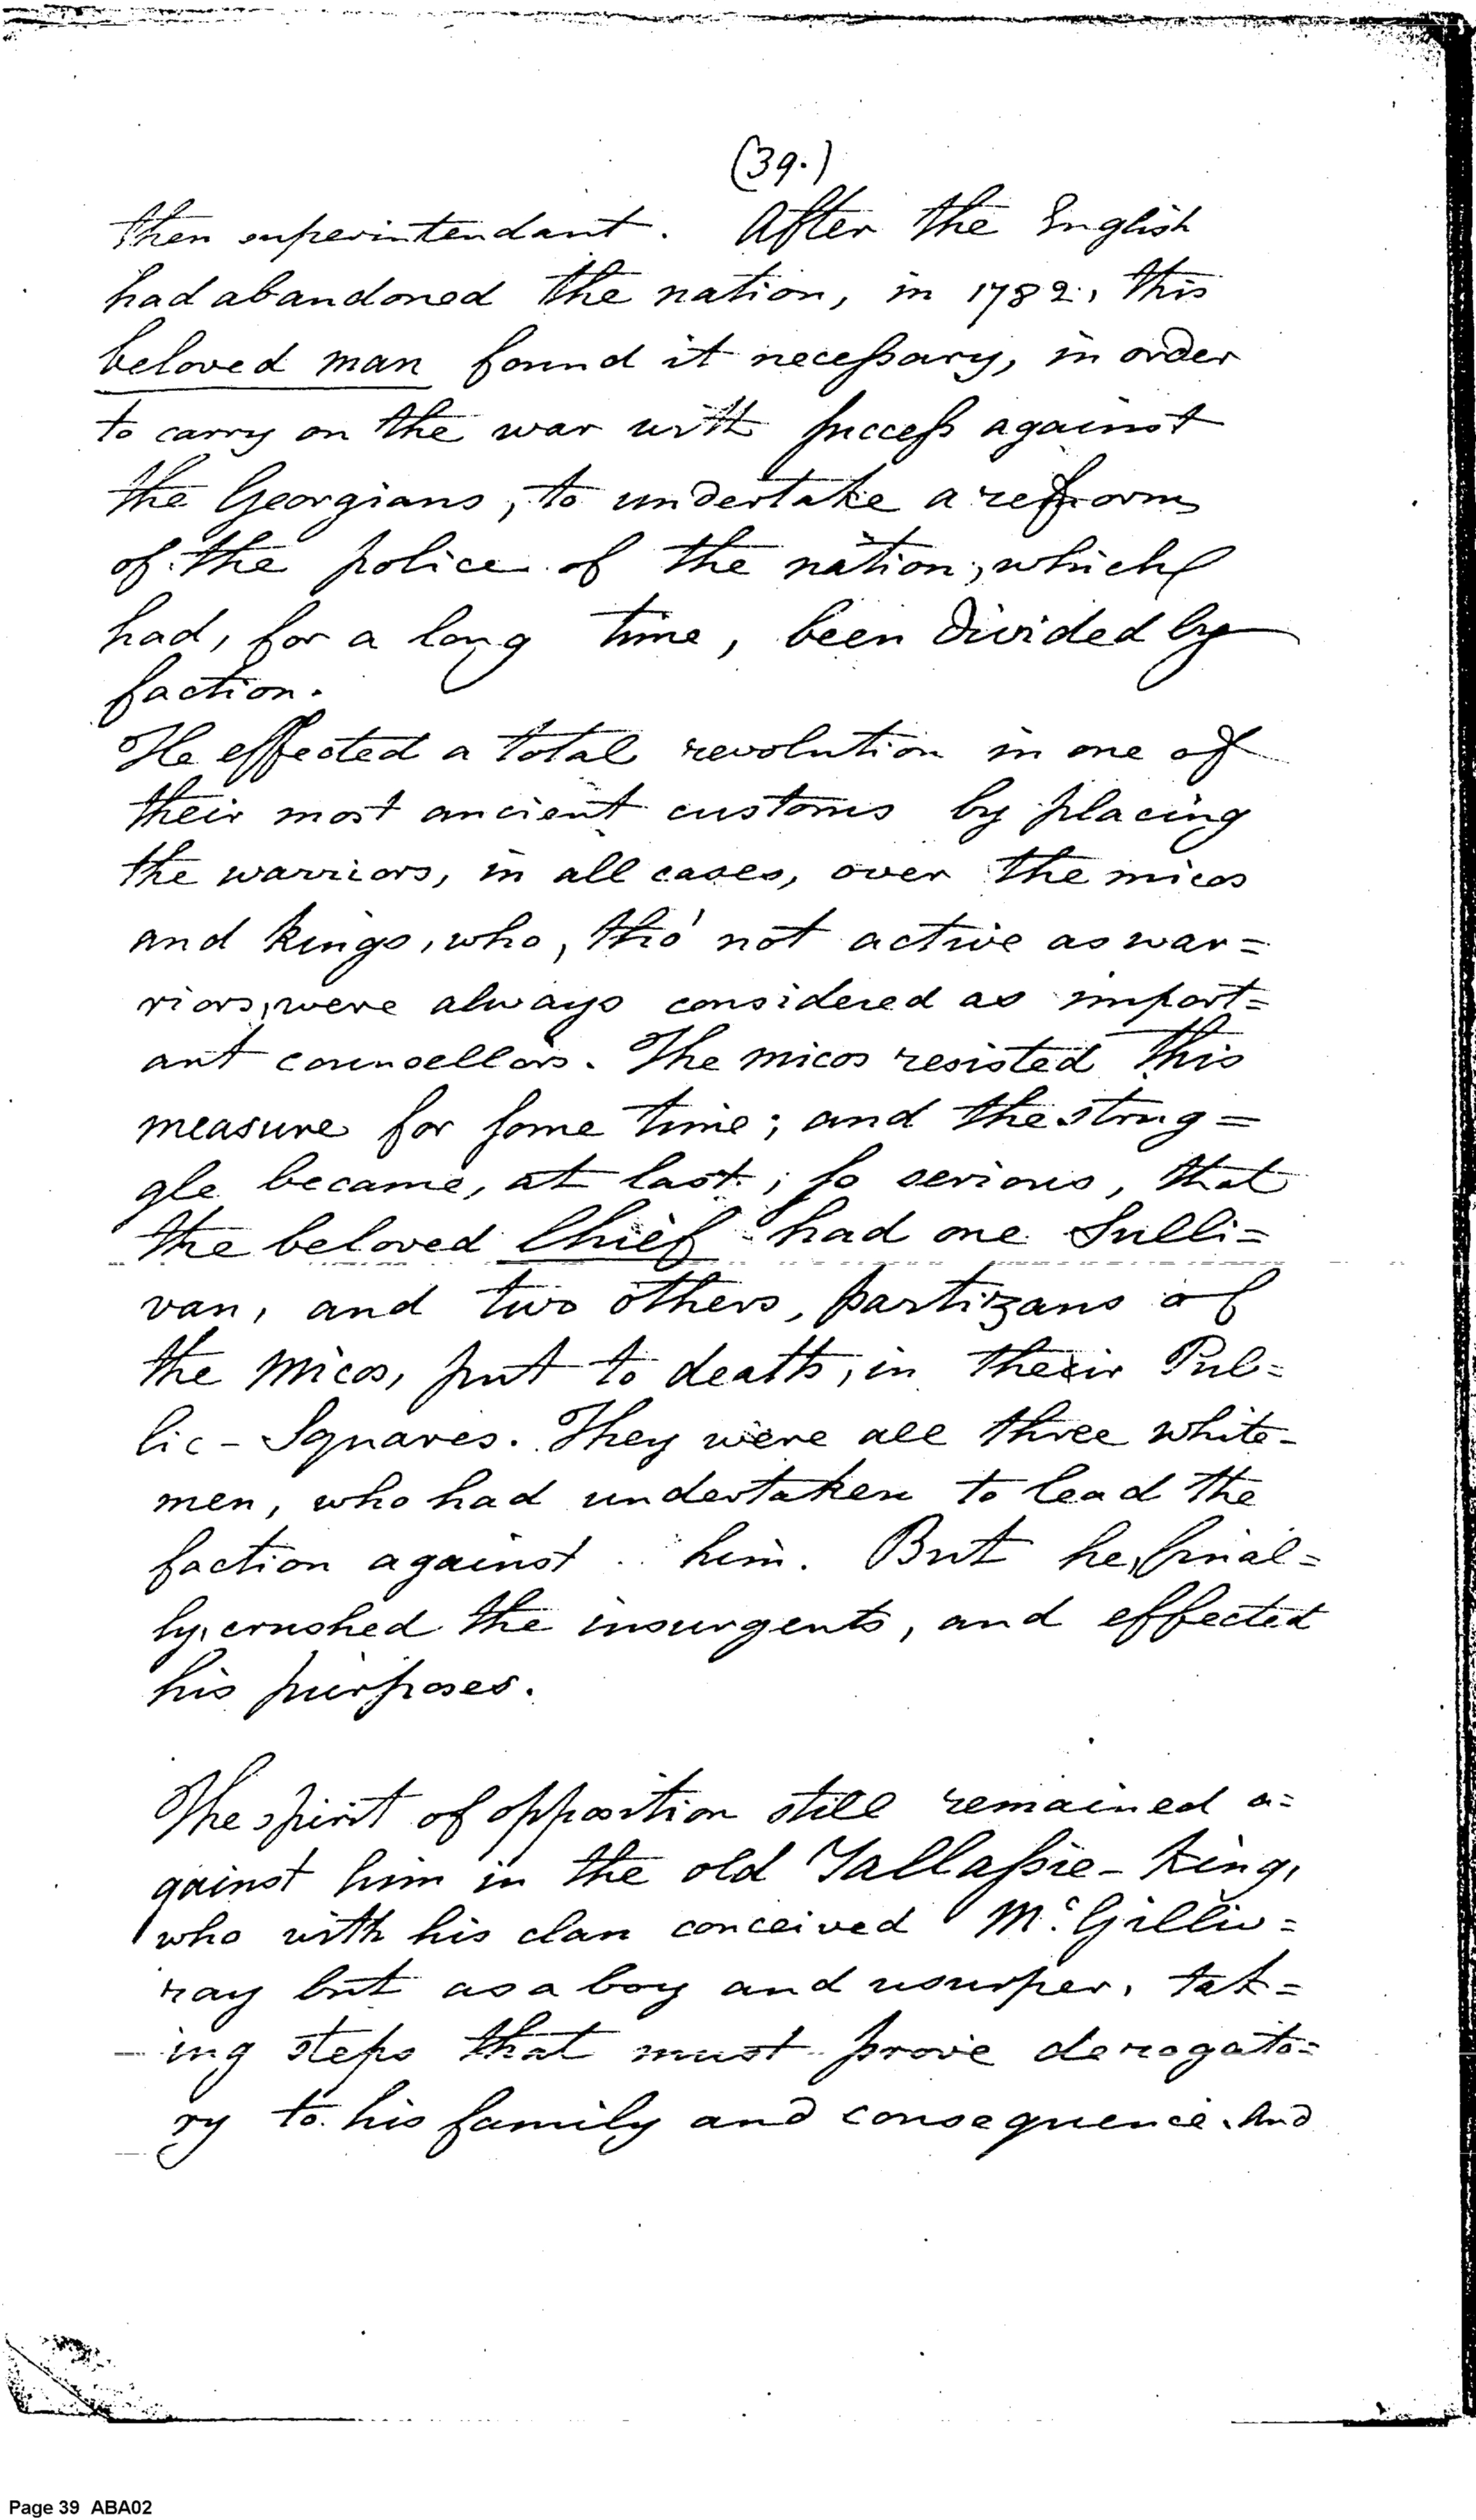 (39.)
then superintendant. After the English
had abandoned the nation, in 1782, this
beloved man found it necessary, in order
to carry on the war with success against
the Georgians, to undertake a reform
of the police of the nation, which
had, for a long time, been divided by
faction.
He effected a total revolution in one of
their most ancient customs by placing
the warriors, in all cases, over the micos
and kings, who, tho' not active as war=
riors, were always considered as import=
ant counsellors. The micos resisted this
measure for some time; and the strug=
gle became, at last, so serious, that
the beloved Chief had one Sulli=
van, and two others, partizans of
the Micos, put to death, in their Pub=
lic-Squares. They were all three white-
men, who had undertaken to lead the
faction against him. But he, final=
ly, crushed the insurgents, and effected
his purposes.
The spirit of opposition still remained a=
gainst him in the old Tallassie-King,
who with his clan conceived Mc.Gilliv=
ray but as a boy and usurper, tak=
ing steps that must prove derogato=
ry to his family and consequence. And
Page 39 ABA02